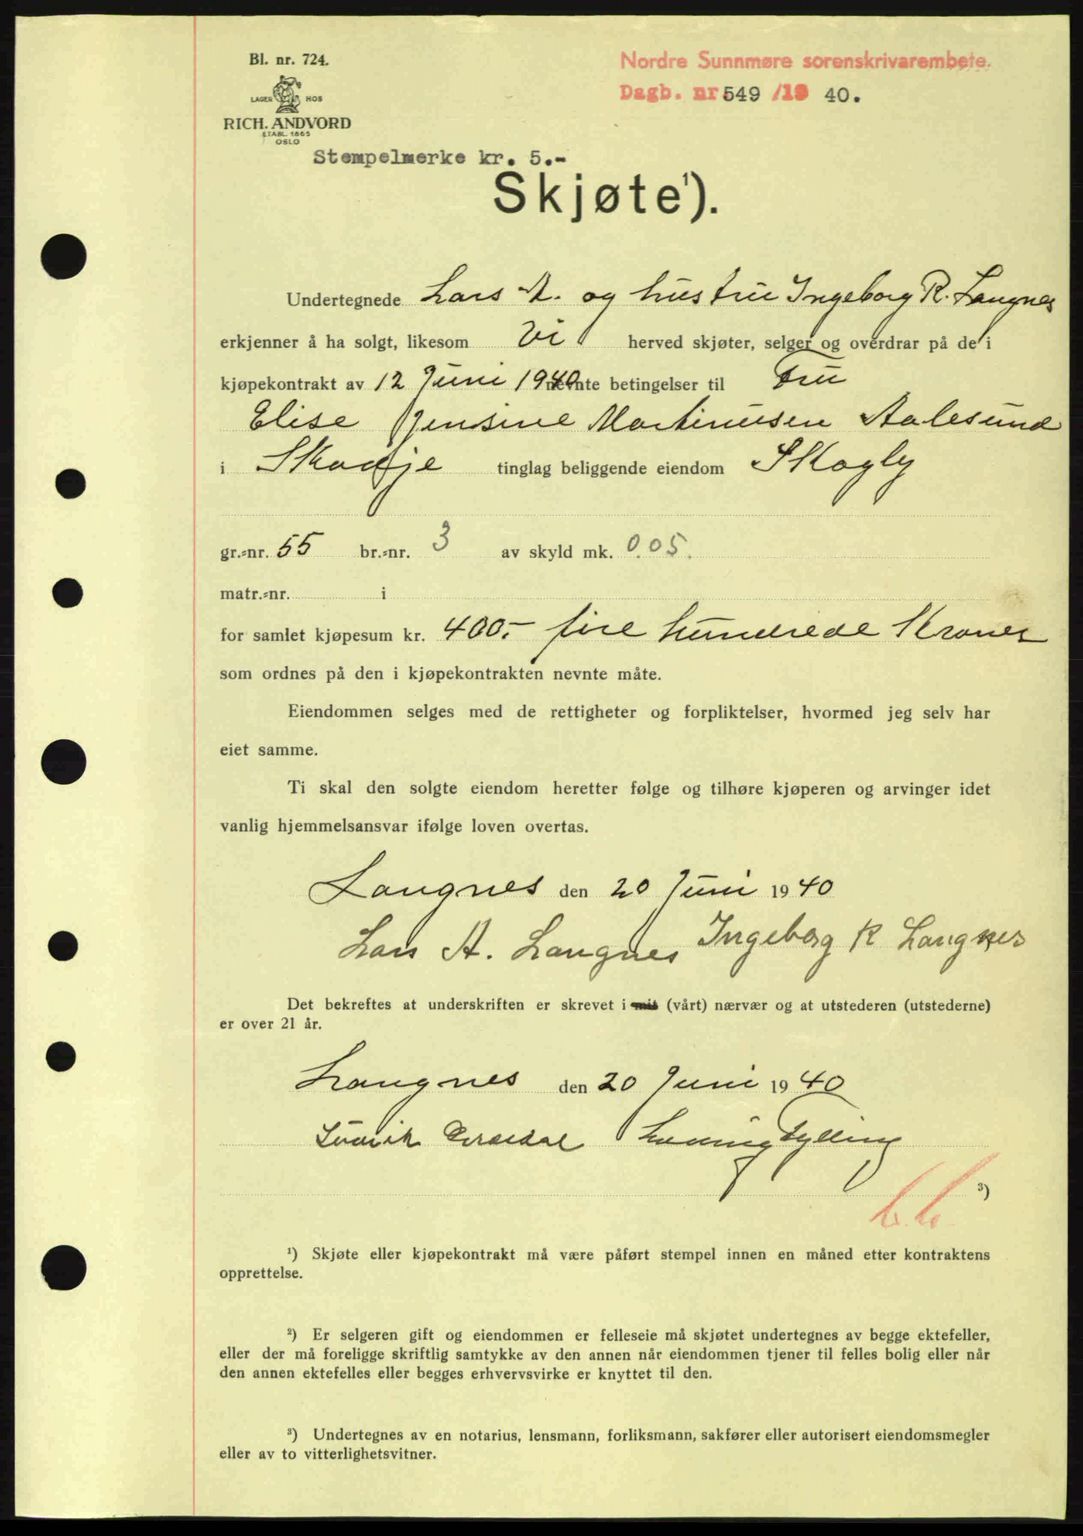 Bl. nr. 724.
LAGER HOS
RICH. ANDVORD
ETABL. 1865
OSLO
Nordre Sunnmøre sorenskrivarembete.
Dagb. nr 549 /19 40.
Stempelmerke kr. 5.-
Skjøte¹).
Undertegnede Lars A. og hustru Ingeborg R. Langnes
erkjenner å ha solgt, likesom Vi herved skjøter, selger og overdrar på de i
kjøpekontrakt av 12 Juni 1940 nevnte betingelser til Fru
Elise Jensine Martinusen Aalesund
i Skodje tinglag beliggende eiendom Skogly
gr.-nr. 55 br.-nr. 3 av skyld mk. 0.05.
matr.-nr. i
for samlet kjøpesum kr. 400.- fire hundrede Kroner
som ordnes på den i kjøpekontrakten nevnte måte.
Eiendommen selges med de rettigheter og forpliktelser, hvormed jeg selv har
eiet samme.
Ti skal den solgte eiendom heretter følge og tilhøre kjøperen og arvinger idet
vanlig hjemmelsansvar ifølge loven overtas.
Langnes den 20 Juni 1940
Lars A. Langnes Ingeborg R Langnes
Det bekreftes at underskriften er skrevet i mit (vårt) nærvær og at utstederen (utstederne)
er over 21 år.
Langnes den 20 Juni 1940
Tylling
³)
¹) Skjøte eller kjøpekontrakt må være påført stempel innen en måned etter kontraktens
opprettelse.
²) Er selgeren gift og eiendommen er felleseie må skjøtet undertegnes av begge ektefeller,
eller der må foreligge skriftlig samtykke av den annen når eiendommen tjener til felles bolig eller når
den annen ektefelles eller begges erhvervsvirke er knyttet til den.
³) Undertegnes av en notarius, lensmann, forliksmann, sakfører eller autorisert eiendomsmegler
eller av to vitterlighetsvitner.